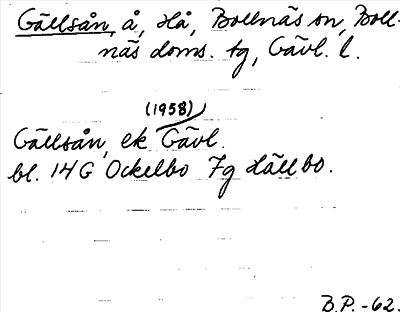 Gällsån, å, Hå, Bollnäs sn, Boll-
näs doms. tg, Gävl. l.
(1958)
Gällsån, ek Gävl.
bl. 14G Ockelbo 7g Hällbo.
B.P.-62.